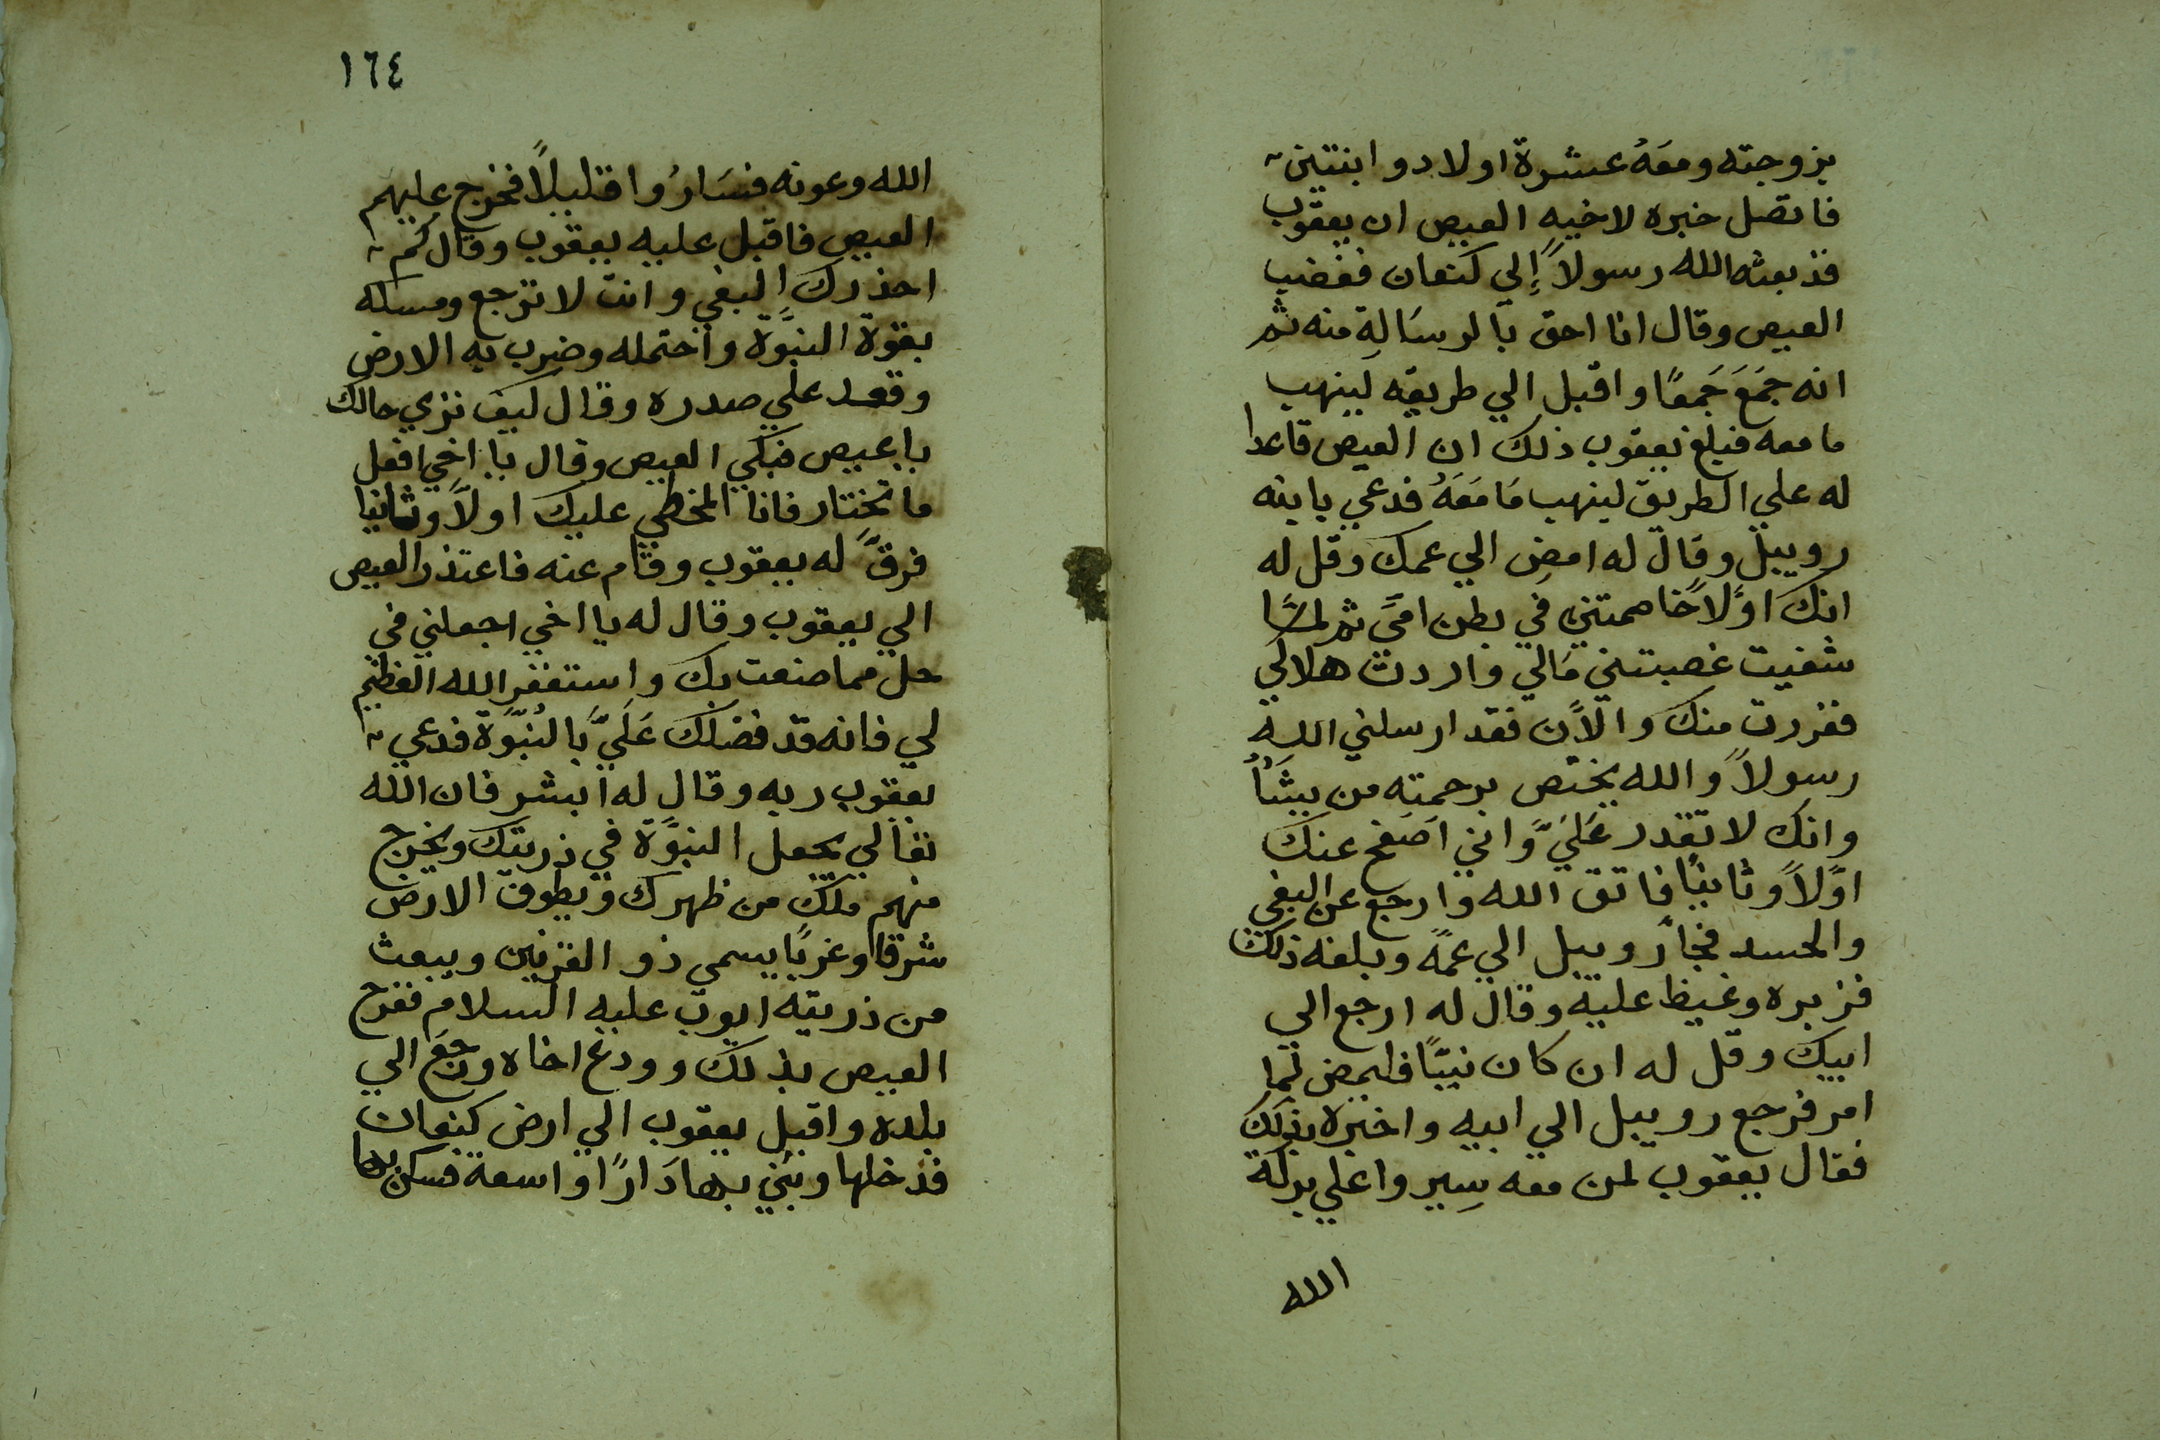 بزوجته ومعَهُ عشرة اولاد وابنتين
فاتصل خبره لاخيه العيص ان يعقوب
قد بعثه الله رسولاً إلي كنعان فغضب
العيص وقال انا احق بالرسَالةِ منه ثم
انه جمَعَ جَمعًا واقبل الي طريقه لينهب
ما معه فبلغ يعقوب ذلك ان العيص قاعدا
له علي الطريق لينهب مَا مَعَهُ فدعي بابنه
روبيل وقال له امضِ الي عمك وقل له
انكَ اوّلاً خاصمتني في بطن امّي ثم لمّا
شفيت غصبتني مَالي واردت هلاكي
ففررت منك والآن فقد ارسلني الله
رسولاً والله يختص برحمتهِ من يشَآُ
وانك لا تقدر عَليَّ وَاني اَصَفح عنك
اوّلاً وثانيًا فاتق الله وارجع عن البغي
والحسد فجاَ روبيل الي عمّه وبلغه ذلك
فزبره وغيظ عليه وقال له ارجع الي
ابيك وقل له ان كان نبيّاً فليمض لما
امر فرجع روبيل الي ابيه واخبره بذلك
فقال يعقوب لمن معه سِيروا علي بركة
الله
١٦٤
الله وعونه فسَارُوا قليلاً فخرج عليهم
العيص فاقبل عليه يعقوب وقال كم
احذرك البغي وانت لا ترجع ومسكه
بقوّة النبوّة واحتمله وضرب به الارض
وقعد علي صدره وقال كيف تري حالك
يا عيص فبكي العيص وقال يا اخي افعل
ما تختار فانا المخطي عليك اولاً وثانيا
فرقَّ له يعقوب وقام عنه فاعتذر العيص
الي يعقوب وقال له يا اخي اجعلني في
حل مما صنعت بك واستغفر الله العظيم
لي فانه قد فضلك عَلَيَّ بالنُبوّة فدعي
يعقوب ربه وقال له ابشر فان الله
تعالي يجعل النبوَّة في ذريتك ويخرج
منهم ملك من ظهرك ويطوف الارض
شرقا وغربًا يسمي ذو القرنين ويبعث
من ذريته ايوب عليه السلام ففرح
العيص بذلك وودع اخاه ورجَع الي
بلده واقبل يعقوب الي ارض كنعان
فدخلها وبني بها دَارًا واسعة فسكن بها